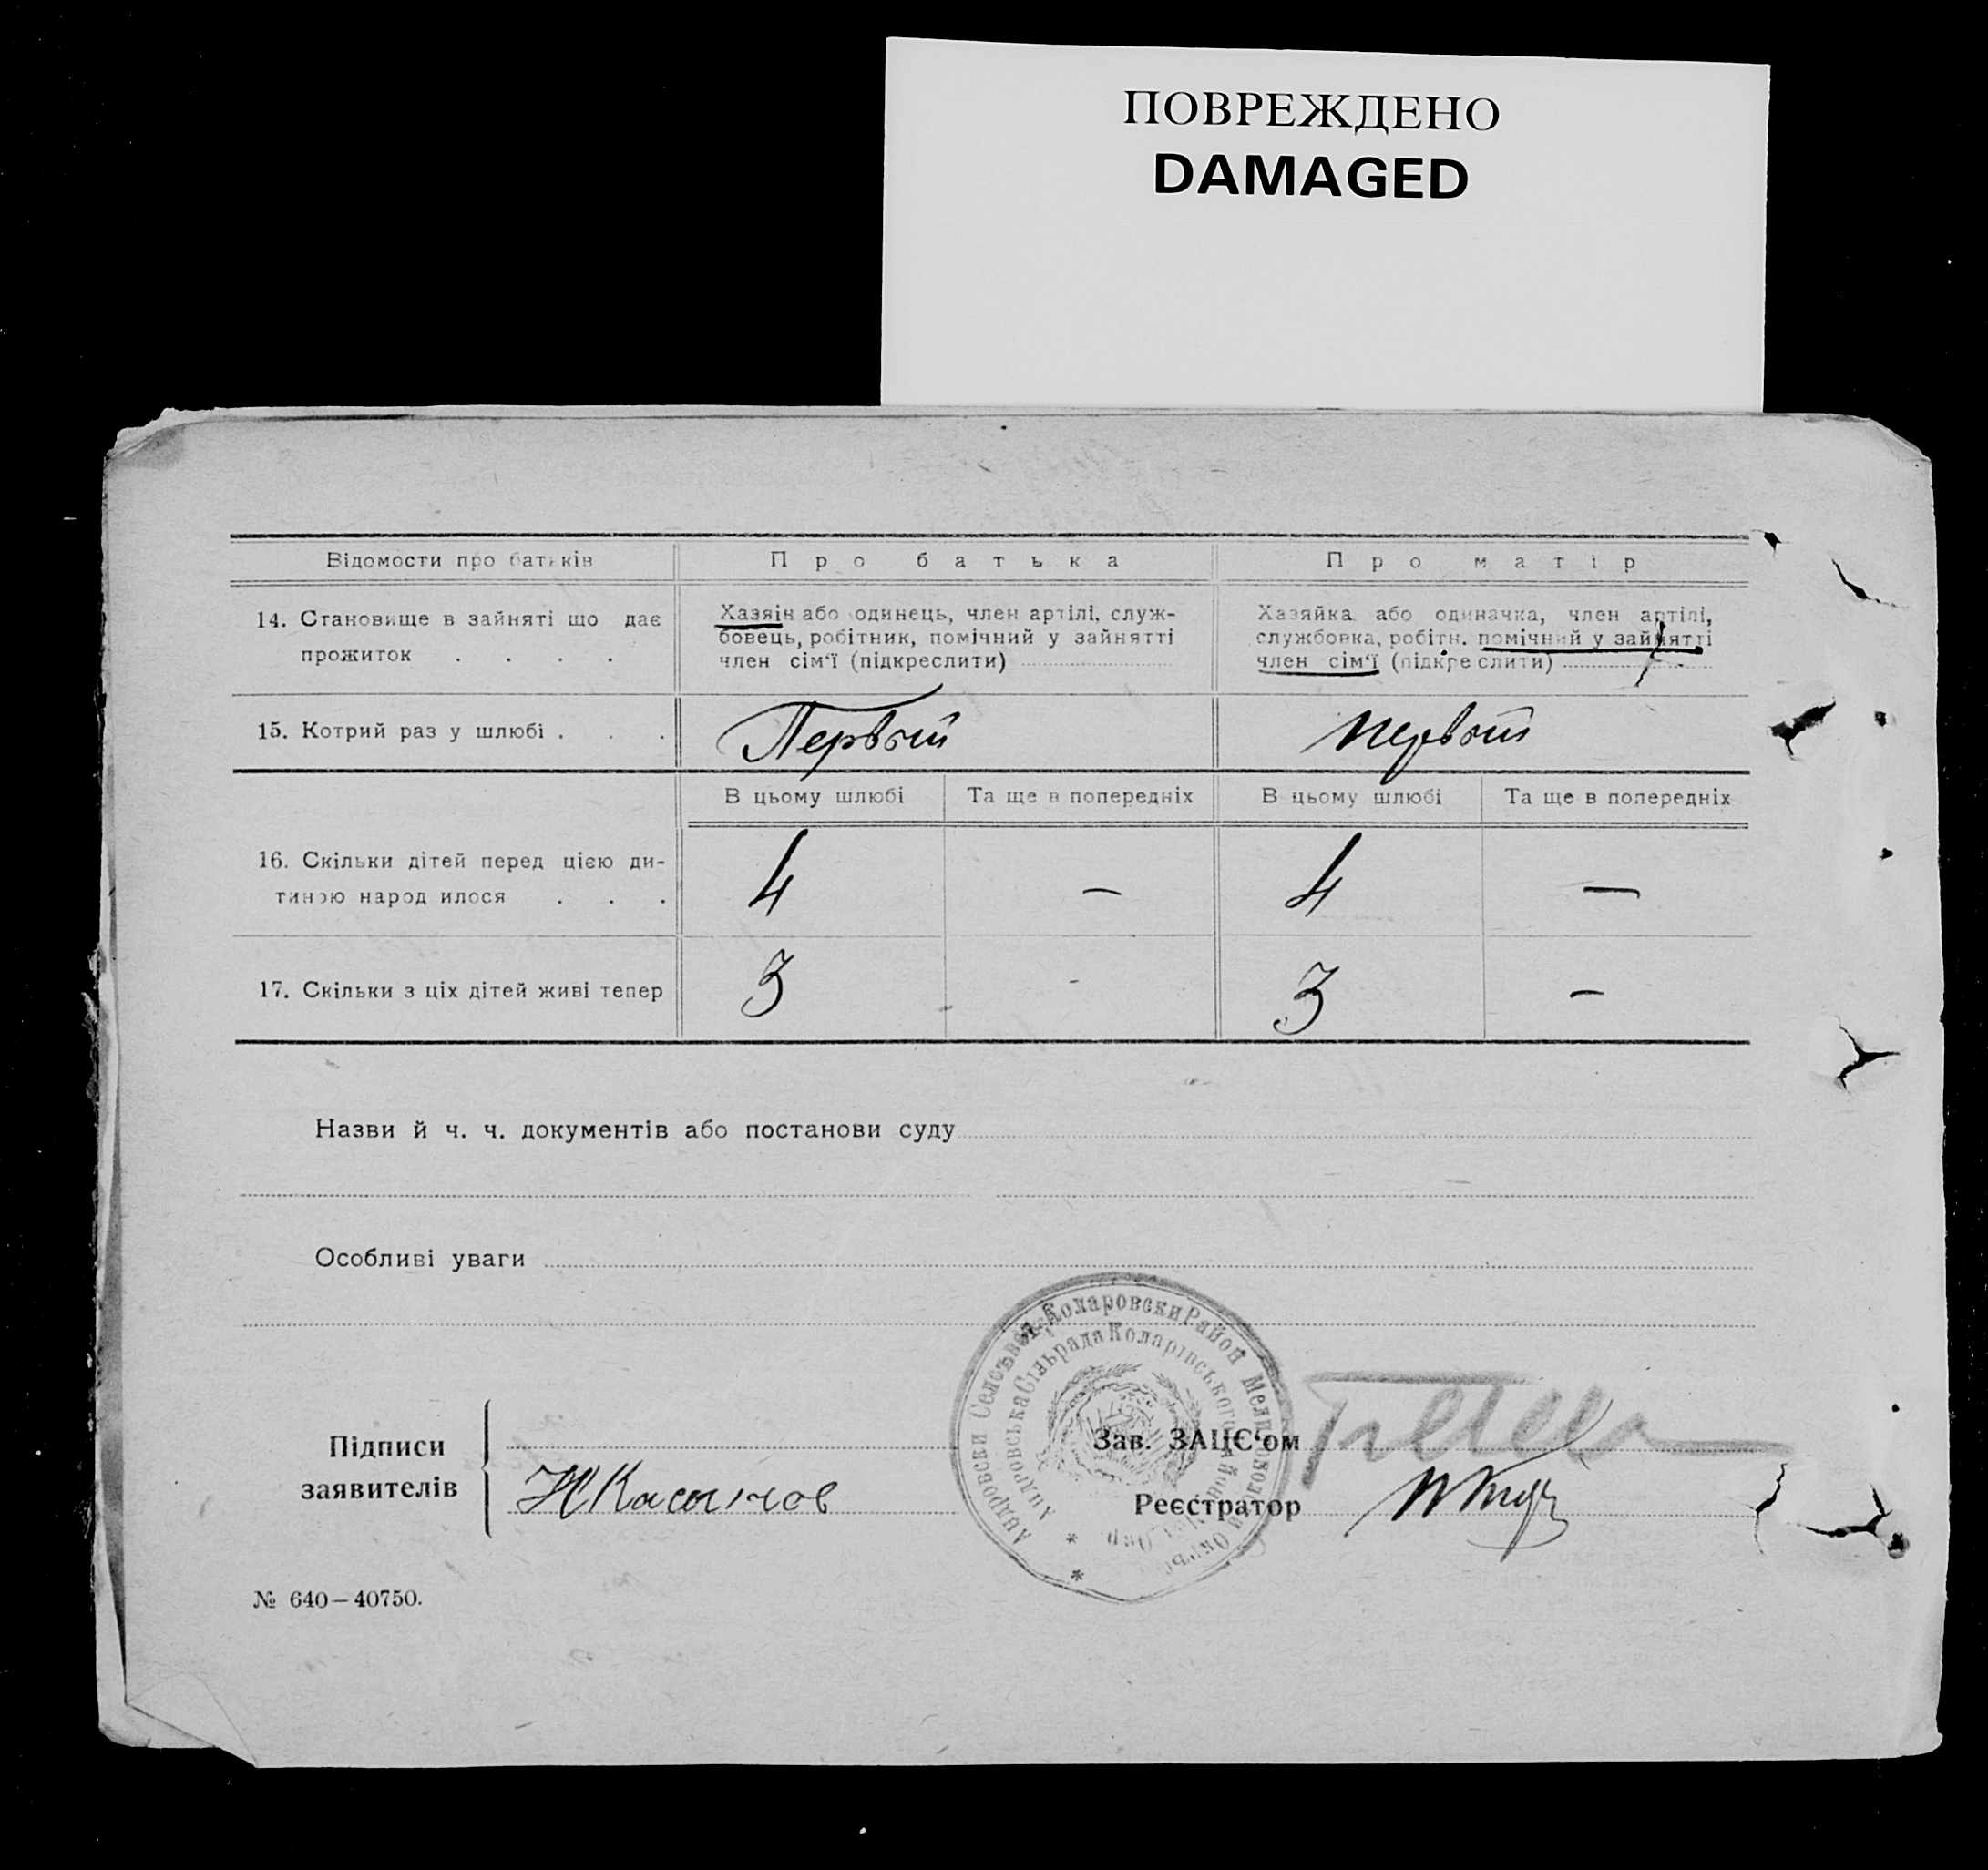 ПОВРЕЖДЕНО
DAMAGED
Відомости про батьків
Про батька
Про матір
14. Становище в зайняті що дає
прожиток . . . .
Хазяін або одинець, член артілі, служ-
бовець, робітник, помічний у зайнятті
член сім'ї (підкреслити)
Хазяйка або одиначка, член артілі,
службовка, робітн. помічний у зайнятті
член сім'ї (підкреслити)
15. Котрий раз у шлюбі . . .
Первый
первый
В цьому шлюбі
Та ще в попередніх
В цьому шлюбі
Та ще в попередніх
16. Скільки дітей перед цією ди-
тиною народилося . . .
4
—
4
—
17. Скільки з ціх дітей живі тепер
3
-
3
—
Назви й ч. ч. документів або постанови суду
Особливі уваги
Андровски Селсъвет, Коларовски Район Мелитополски Окръг
Андровська Сільрада Коларівського Району Мел. Окр.
Підписи
заявителів
Зав. ЗАЦС'ом
Реєстратор
№ 640—40750.